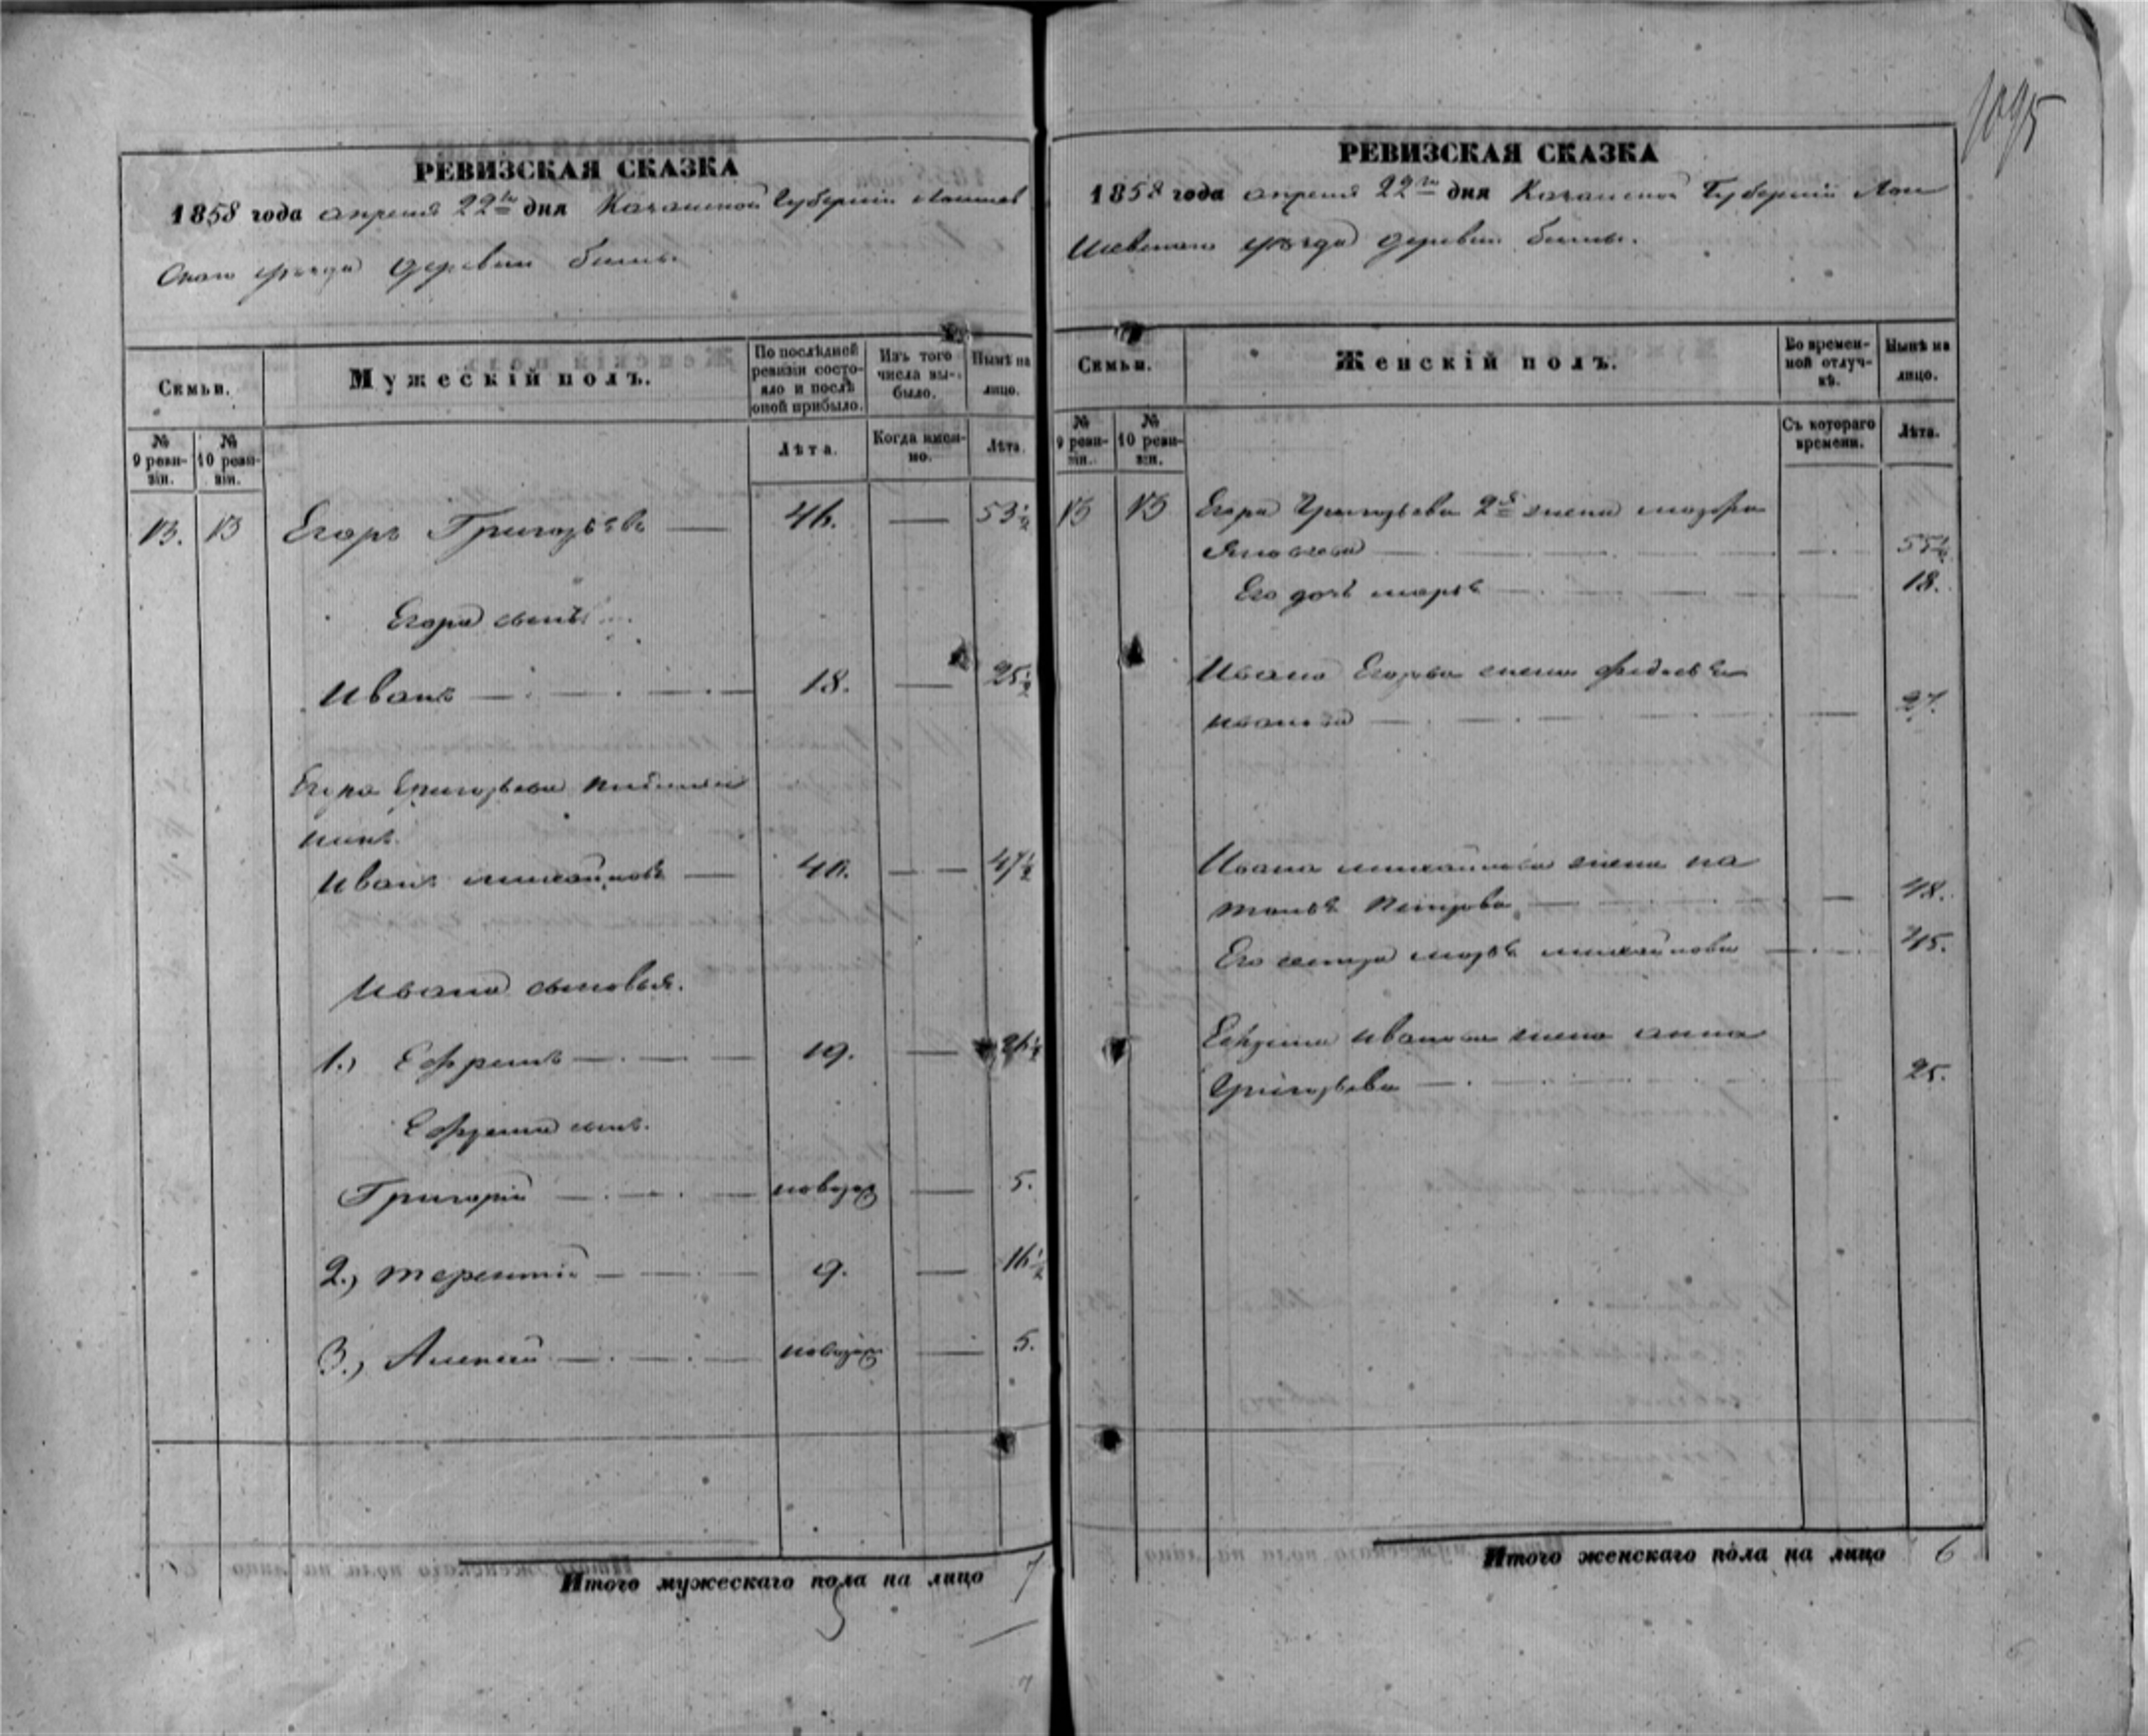 1095
РЕВИЗСКАЯ СКАЗКА
1858 года апреля 22го дня Казанской Губерніи Лаишев
скаго уѣзда деревни
Семьи.
Мужескій полъ.
По послѣдней ревизіи состояло и послѣ оной прибыло.
Изъ того числа выбыло.
Нынѣ на лицо.
№ 9 ревизіи.
№ 10 ревизіи.
Лѣта.
Когда именно.
Лѣта.
13. 13 Егоръ Григорьевъ — 46. — 53½
Егора сынъ
Иванъ — 18. — 25½
Егора Григорьева племян
никъ
Иванъ михайловъ — 40. — 47½
Ивана сыновья.
1., Ефремъ — 19. — 26½
Ефрема сынъ.
Григорій — новорож — 5.
2., терентій — 9. — 16½
3., Алексей — новорож — 5.
Итого мужескаго пола на лицо 7
РЕВИЗСКАЯ СКАЗКА
1858 года апреля 22го дня Казанской Губерніи Лаи
шевскаго уѣзда деревни
Семьи.
Женскій полъ.
Во временной отлучкѣ.
Нынѣ на лицо.
№ 9 ревизіи.
№ 10 ревизіи.
Съ котораго времени.
Лѣта.
13 13 Егора Григорьева 2я жена
— 55½
Его дочь марья — 18.
Ивана Егорова жена
иванова — 27.
Ивана михайлова жена на
талья Петрова — 48.
Его сестра марья михайлова — 45.
Ефрема Иванова жена анна
Григорьева — 25.
Итого женскаго пола на лицо 6